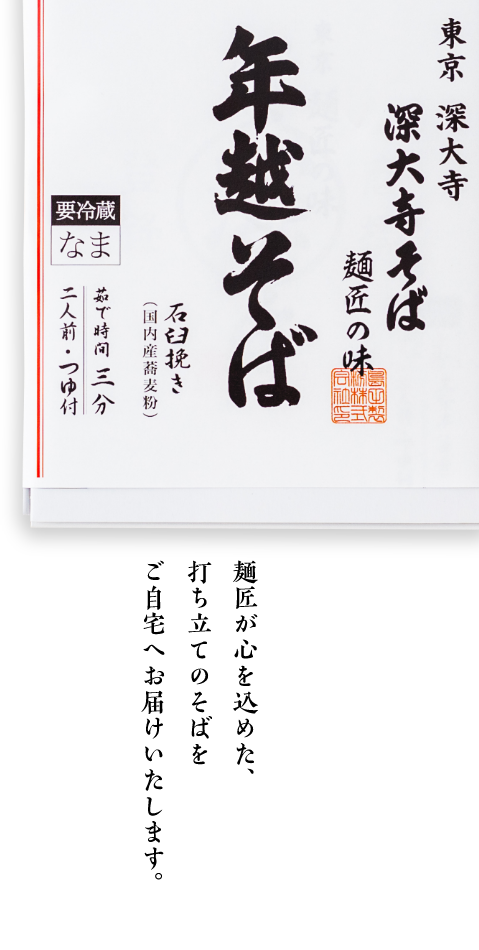 東京 深大寺
深大寺そば
麺匠の味
年越そば
石臼挽き
（国内産蕎麦粉）
要冷蔵
なま
茹で時間 三分
二人前・つゆ付
麺匠が心を込めた、
打ち立てのそばを
ご自宅へお届けいたします。